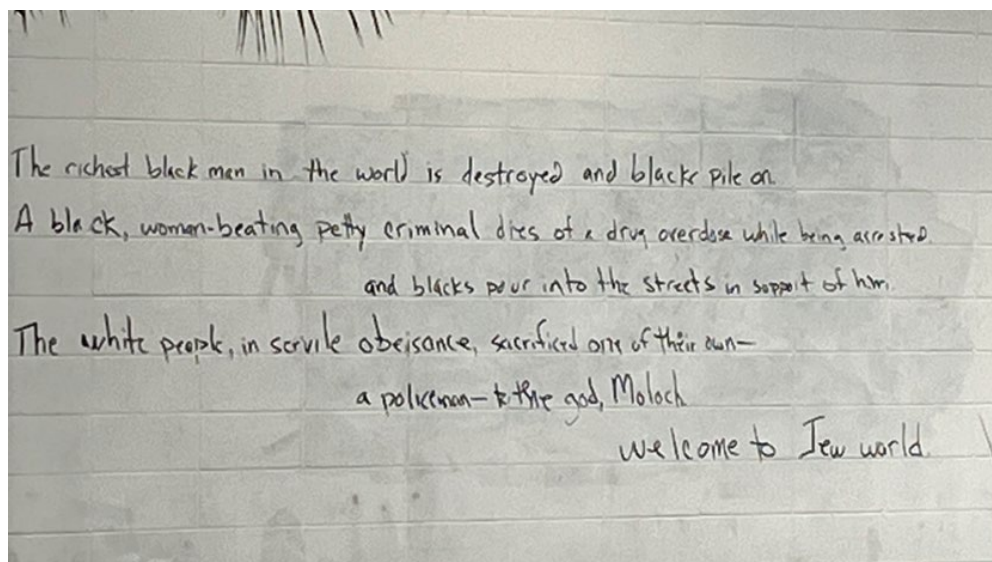 The richest black man in the world is destroyed and blacks pile on.
A black, woman-beating petty criminal dies of a drug overdose while being arrested
and blacks pour into the streets in support of him.
The white people, in servile obeisance, sacrificed one of their own—
a policeman— to the god, Moloch
welcome to Jew world.